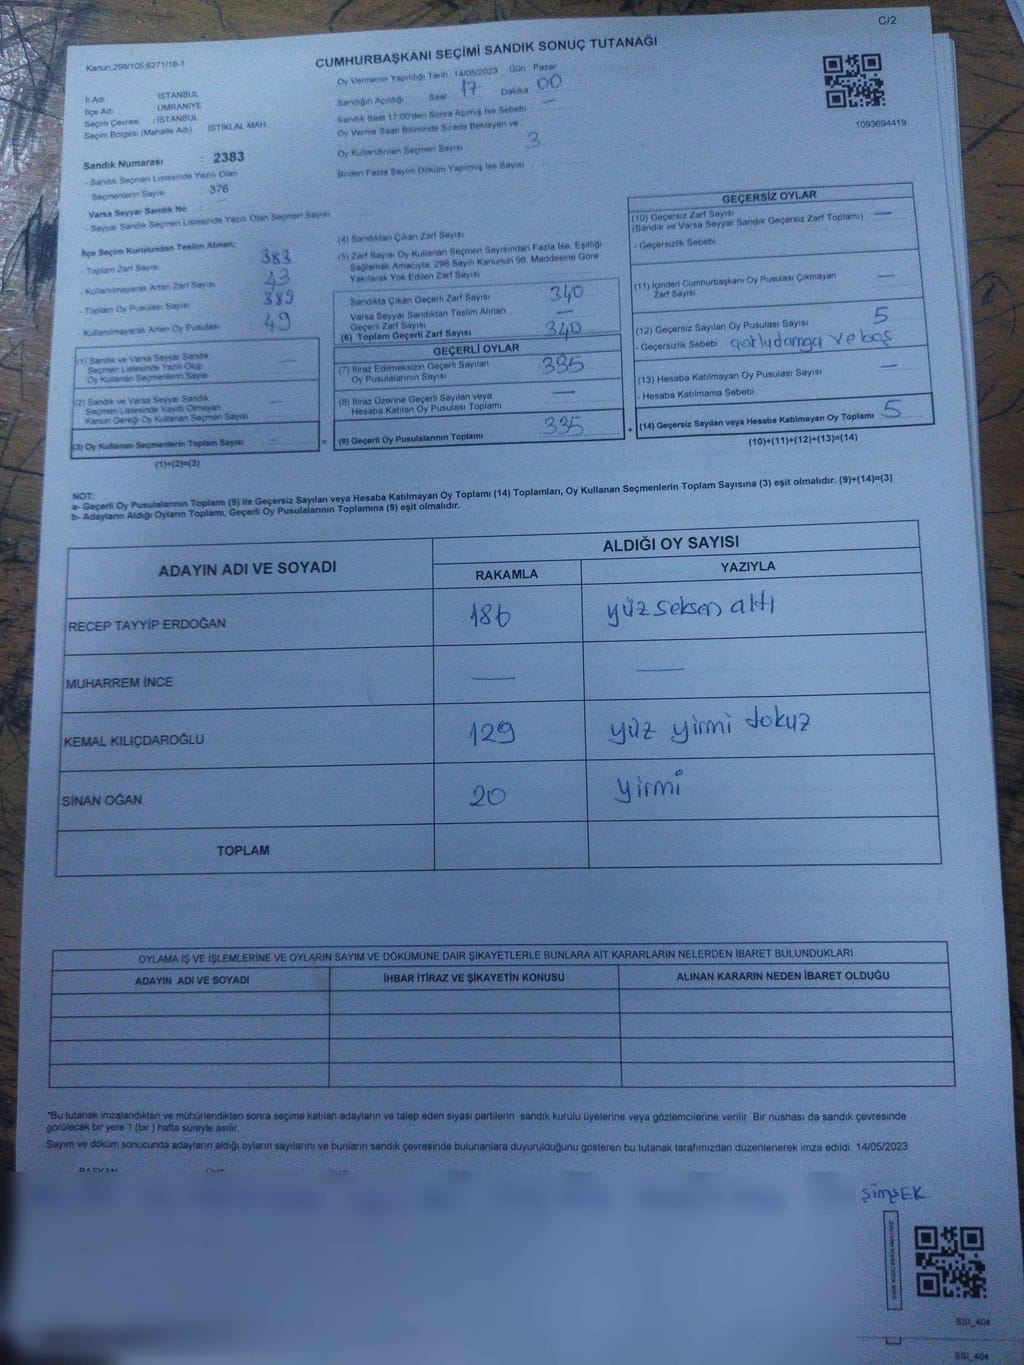 C/2
Kanun:298/105;6271/18-1
CUMHURBAŞKANI SEÇİMİ SANDIK SONUÇ TUTANAĞI
Oy Vermenin Yapıldığı Tarih 14/05/2023 Gün Pazar
Sandığın Açıldığı Saat 17 Dakika 00
Sandık Saat 17:00'den Sonra Açılmış İse Sebebi —
Oy Verme Saati Bitiminde Sırada Bekleyen ve
Oy Kullandırılan Seçmen Sayısı 3
Birden Fazla Sayım Döküm Yapılmış İse Sayısı
İl Adı : İSTANBUL
İlçe Adı : ÜMRANİYE
Seçim Çevresi : İSTANBUL
Seçim Bölgesi (Mahalle Adı) İSTİKLAL MAH
1093694419
Sandık Numarası : 2383
- Sandık Seçmen Listesinde Yazılı Olan
Seçmenlerin Sayısı : 376
Varsa Seyyar Sandık No :
- Seyyar Sandık Seçmen Listesinde Yazılı Olan Seçmen Sayısı
İlçe Seçim Kurulundan Teslim Alınan;
- Toplam Zarf Sayısı 383
- Kullanılmayarak Artan Zarf Sayısı 43
- Toplam Oy Pusulası Sayısı 389
- Kullanılmayarak Artan Oy Pusulası 49
(1) Sandık ve Varsa Seyyar Sandık
Seçmen Listesinde Yazılı Olup
Oy Kullanan Seçmenlerin Sayısı —
(2) Sandık ve Varsa Seyyar Sandık
Seçmen Listesinde Kayıtlı Olmayan
Kanun Gereği Oy Kullanan Seçmen Sayısı —
(3) Oy Kullanan Seçmenlerin Toplam Sayısı —
(1)+(2)=(3)
(4) Sandıktan Çıkan Zarf Sayısı
(5) Zarf Sayısı Oy Kullanan Seçmen Sayısından Fazla İse, Eşitliği
Sağlamak Amacıyla, 298 Sayılı Kanunun 98. Maddesine Göre
Yakılarak Yok Edilen Zarf Sayısı
Sandıkta Çıkan Geçerli Zarf Sayısı 340
Varsa Seyyar Sandıktan Teslim Alınan
Geçerli Zarf Sayısı —
(6) Toplam Geçerli Zarf Sayısı 340
GEÇERLİ OYLAR
(7) İtiraz Edilmeksizin Geçerli Sayılan
Oy Pusulalarının Sayısı 335
(8) İtiraz Üzerine Geçerli Sayılan veya
Hesaba Katılan Oy Pusulası Toplamı —
(9) Geçerli Oy Pusulalarının Toplamı 335
GEÇERSİZ OYLAR
(10) Geçersiz Zarf Sayısı
(Sandık ve Varsa Seyyar Sandık Geçersiz Zarf Toplamı) —
- Geçersizlik Sebebi
(11) İçinden Cumhurbaşkanı Oy Pusulası Çıkmayan
Zarf Sayısı —
(12) Geçersiz Sayılan Oy Pusulası Sayısı 5
- Geçersizlik Sebebi çokludamga ve boş
(13) Hesaba Katılmayan Oy Pusulası Sayısı —
- Hesaba Katılmama Sebebi
(14) Geçersiz Sayılan veya Hesaba Katılmayan Oy Toplamı 5
(10)+(11)+(12)+(13)=(14)
NOT:
a- Geçerli Oy Pusulalarının Toplamı (9) ile Geçersiz Sayılan veya Hesaba Katılmayan Oy Toplamı (14) Toplamları, Oy Kullanan Seçmenlerin Toplam Sayısına (3) eşit olmalıdır. (9)+(14)=(3)
b- Adayların Aldığı Oyların Toplamı, Geçerli Oy Pusulalarının Toplamına (9) eşit olmalıdır.
ADAYIN ADI VE SOYADI
ALDIĞI OY SAYISI
RAKAMLA YAZIYLA
RECEP TAYYİP ERDOĞAN 186 yüz seksen altı
MUHARREM İNCE — —
KEMAL KILIÇDAROĞLU 129 yüz yirmi dokuz
SİNAN OĞAN 20 yirmi
TOPLAM
OYLAMA İŞ VE İŞLEMLERİNE VE OYLARIN SAYIM VE DÖKÜMÜNE DAİR ŞİKAYETLERLE BUNLARA AİT KARARLARIN NELERDEN İBARET BULUNDUKLARI
ADAYIN ADI VE SOYADI İHBAR İTİRAZ VE ŞİKAYETİN KONUSU ALINAN KARARIN NEDEN İBARET OLDUĞU
*Bu tutanak imzalandıktan ve mühürlendikten sonra seçime katılan adayların ve talep eden siyasi partilerin sandık kurulu üyelerine veya gözlemcilerine verilir. Bir nüshası da sandık çevresinde
görülecek bir yere 1 (bir ) hafta süreyle asılır.
Sayım ve döküm sonucunda adayların aldığı oyların sayılarını ve bunların sandık çevresinde bulunanlara duyurulduğunu gösteren bu tutanak tarafımızdan düzenlenerek imza edildi. 14/05/2023
BAŞKAN
ŞİMŞEK
SSI_404
SSI_404